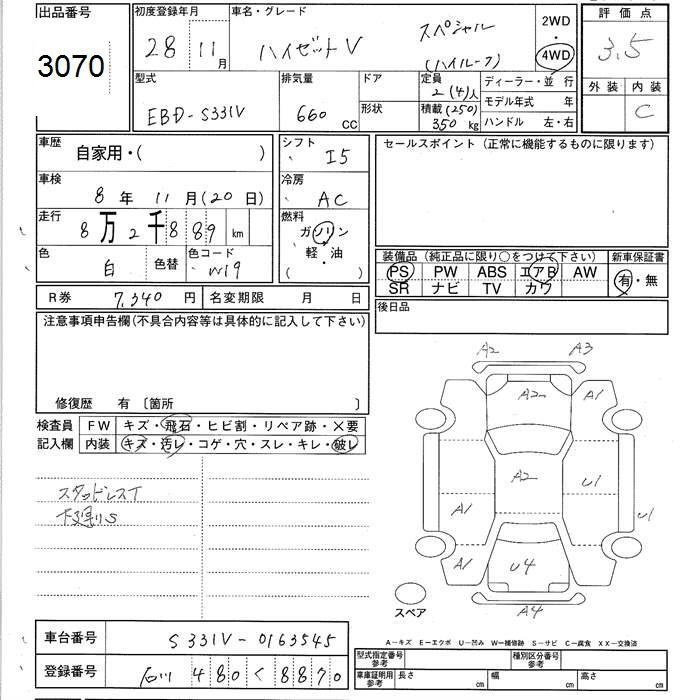 出品番号
3070
初度登録年月
28 11月
車名・グレード
ハイゼットV スペシャル
(ハイルーフ)
2WD
4WD
評価点
3.5
外装 内装
C
型式
EBD-S331V
排気量
660 CC
ドア
形状
定員
2(4)人
積載(250)
350kg
ディーラー・並行
モデル年式 年
ハンドル 左・右
車歴
自家用・( )
シフト
I5
車検
8年 11月(20日)
冷房
AC
走行
8万2千889km
燃料
ガソリン
軽・油
( )
色
白
色替
色コード
W19
R券 7,340円
名変期限 月 日
セールスポイント(正常に機能するものに限ります)
装備品(純正品に限り○をつけて下さい)
PS PW ABS エアB AW
SR ナビ TV カワ
新車保証書
有・無
後日品
注意事項申告欄(不具合内容等は具体的に記入して下さい)
修復歴 有〔箇所 〕
検査員
記入欄
FW キズ・飛石・ヒビ割・リペア跡・X要
内装 キズ・汚レ・コゲ・穴・スレ・キレ・破レ
スタッドレスT
下廻りS
A2 A3
A2 A1
A2 U1
A1 U1
A1 U4
A4
スペア
A-キズ E-エクボ U-凹み W-補修跡 S-サビ C-腐食 XX-交換済
車台番号
S331V-0163545
登録番号
石川 480 く 8870
型式指定番号
参考
種別区分番号
参考
車庫証明用
参考
長さ cm
幅 cm
高さ cm